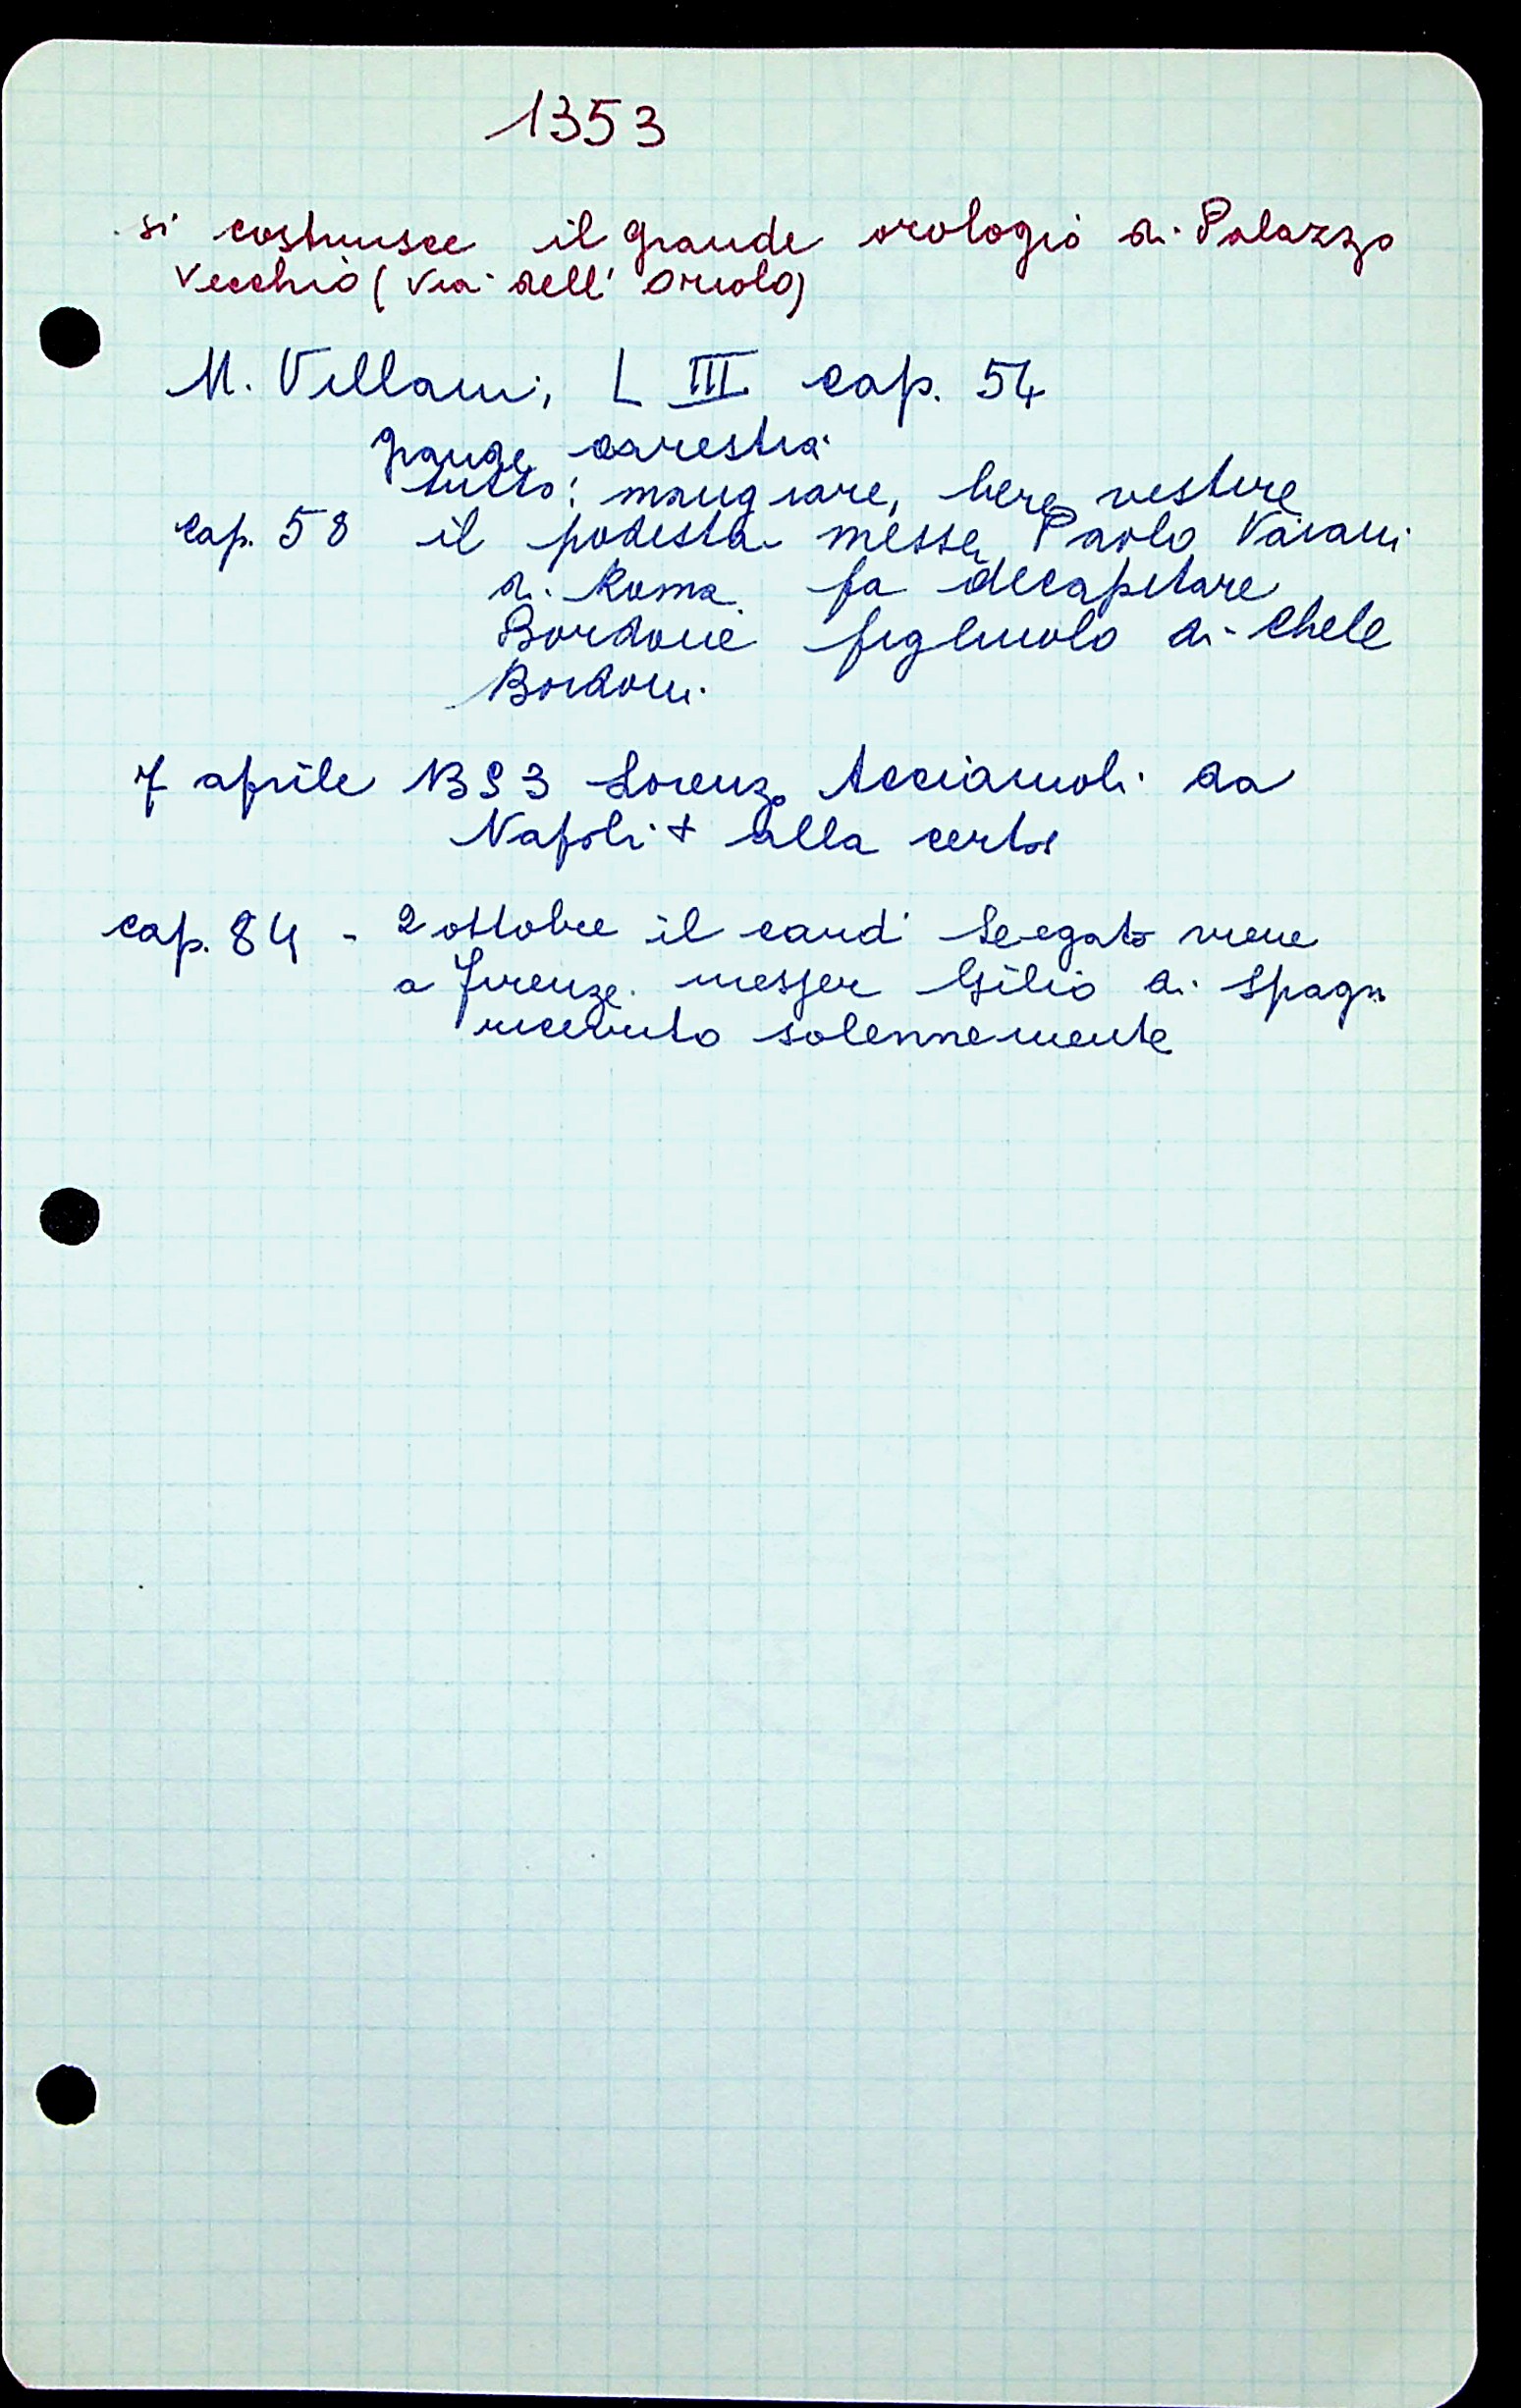 1353
si costruisce il grande orologio di Palazzo
Vecchio (Via dell' Oriolo)
M. Villani, L III cap. 54
grande carestia
tutto: mangiare, bere vestire
cap. 58 il podestà messer Paolo Vaiani
di Roma fa decapitare
Bordone figliuolo di Chele
Bordoni.
7 aprile 1353 Lorenzo Acciaiuoli da
Napoli + alla certosa
cap. 84 - 2 ottobre il card legato viene
a Firenze. messer Gilio di Spagna
ricevuto solennemente